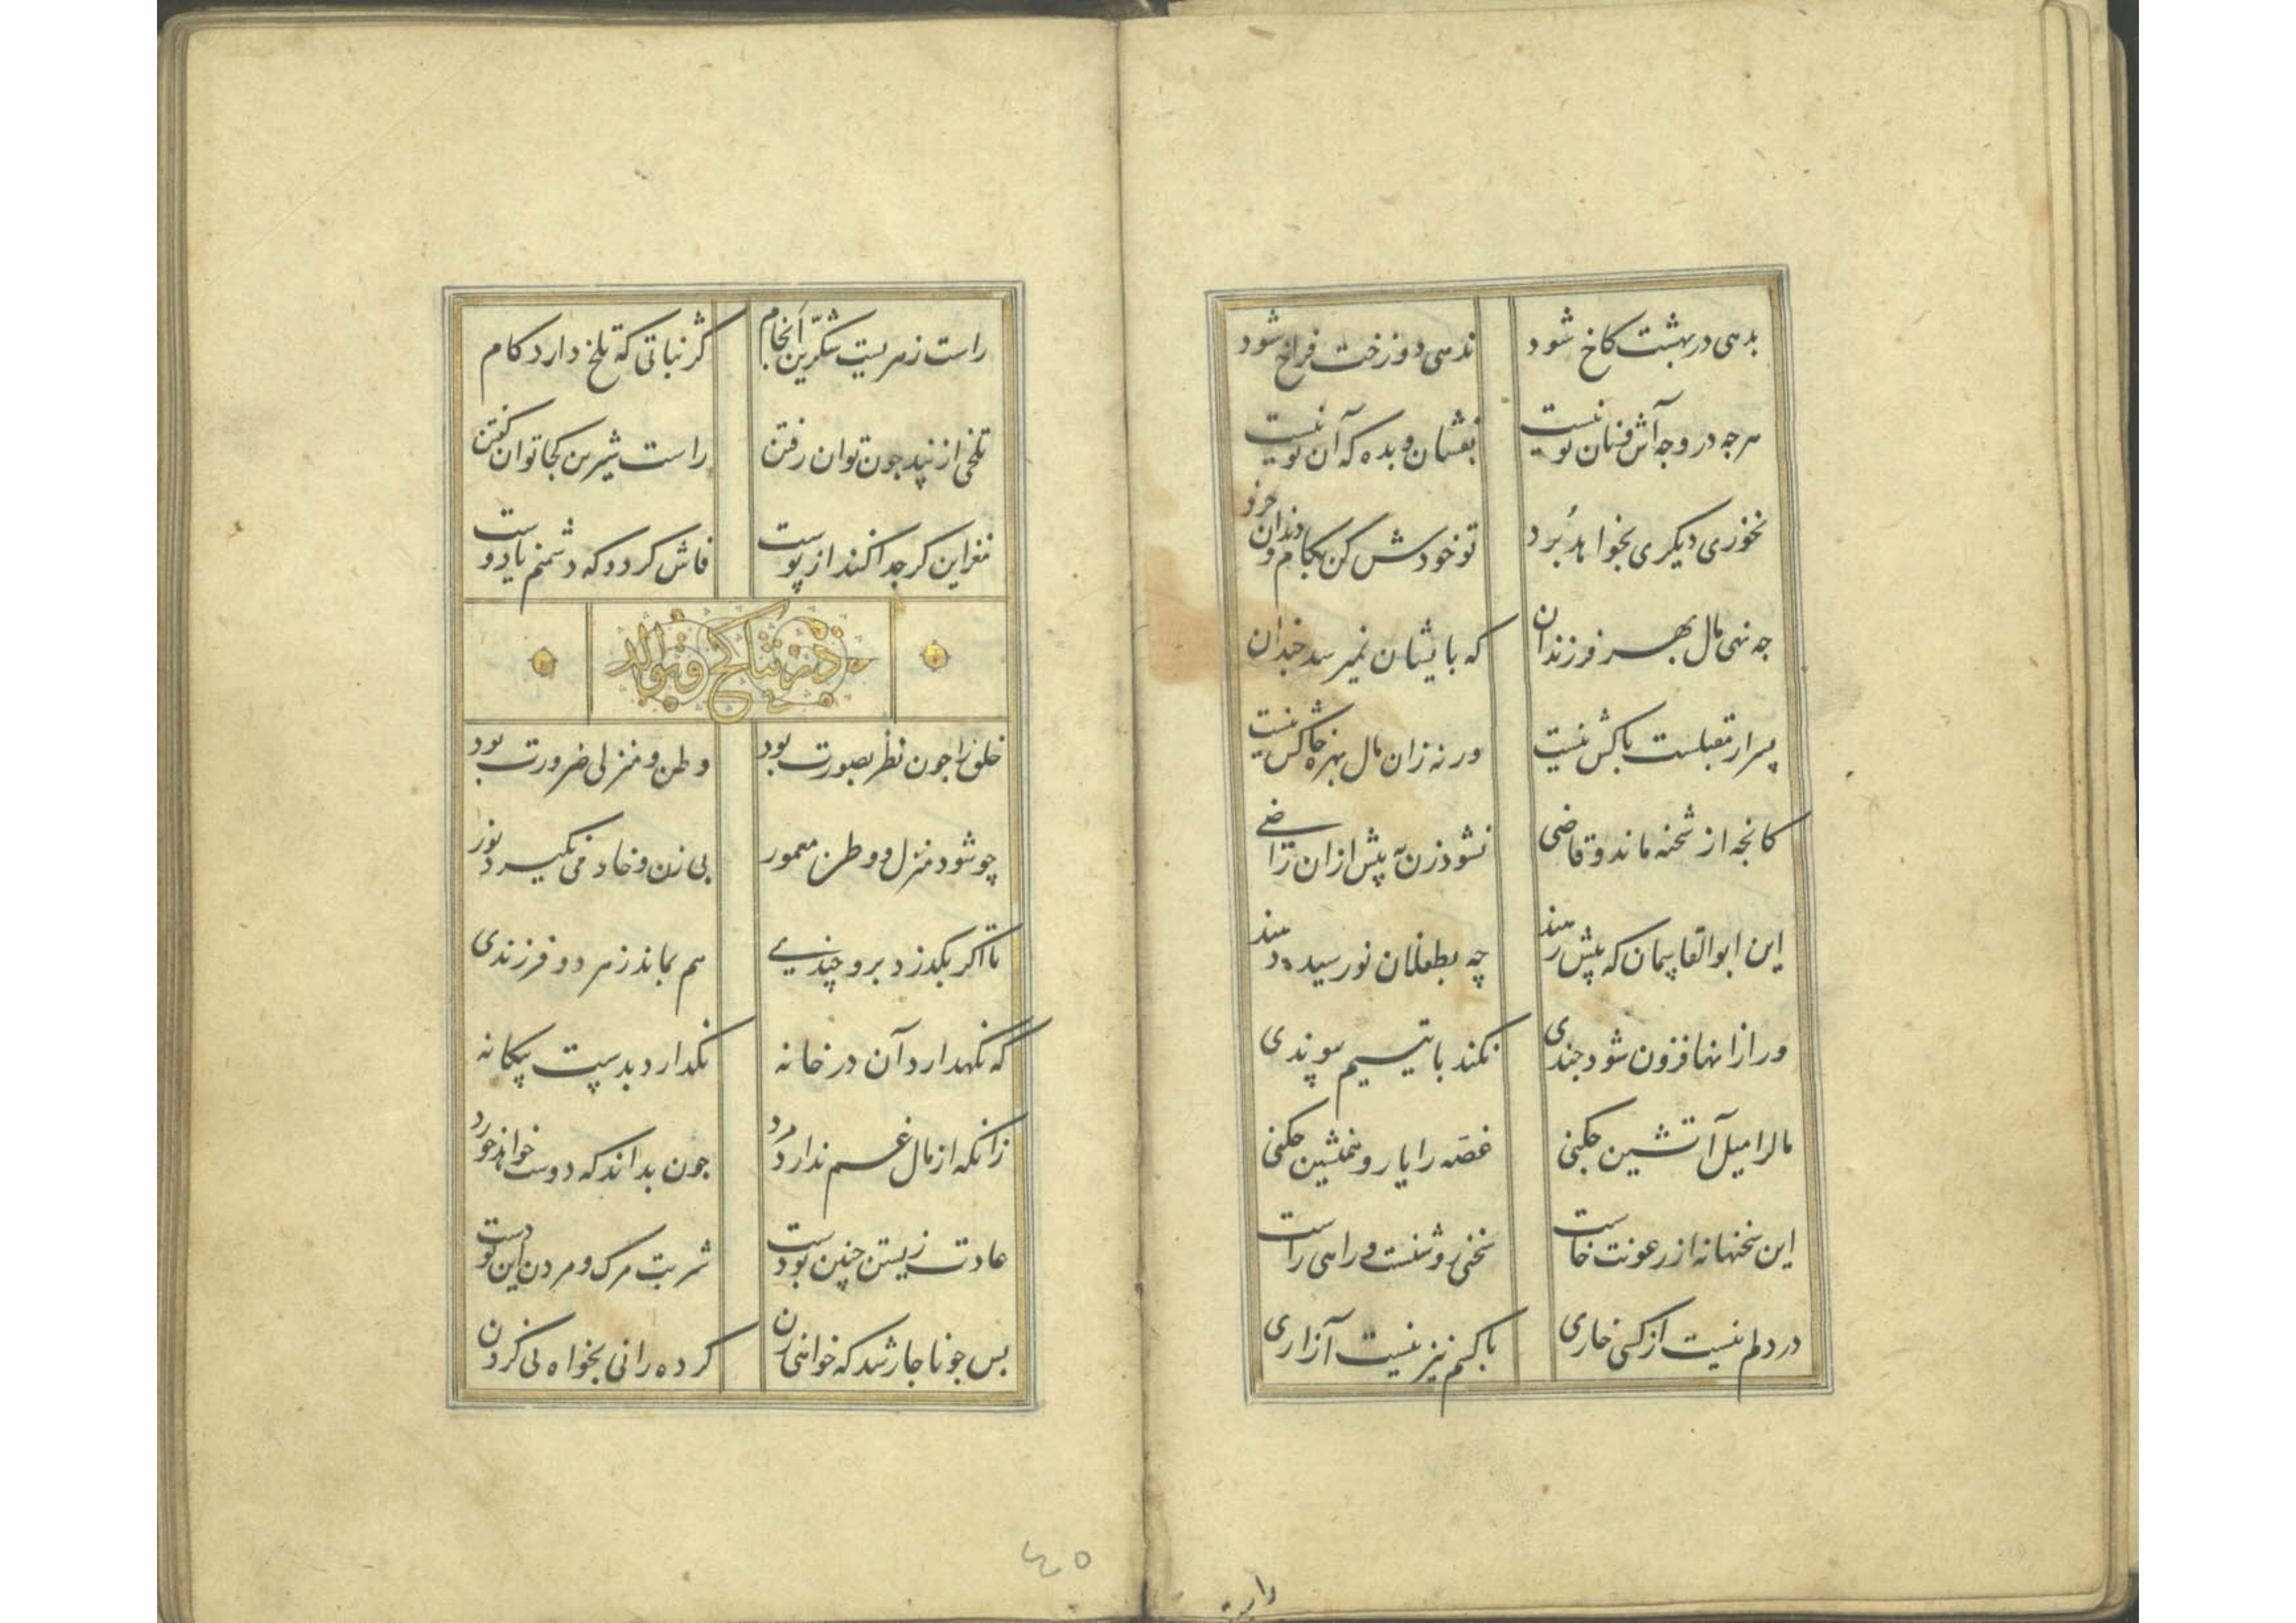 بدهی در بهشت کاخ شود ندهی دوزخت فراخ شود
هرچه در وجه آش و نان تو نیست بفشان و بده که آن تو نیست
نخوری دیگری بخواهد بُرد تو خودش کن بکام و دندان خرد
چه نهی مال بهر فرزندان که بایشان نمیرسد چندان
پسر ار مقبلست باکش نیست ورنه زان مال بهره خاکش نیست
کانچه از شحنه ماند و قاضی نشود زن به پیش از آن راضی
این ابوالقاسمان که پیش رسند چه بطفلان نورسیده دهند
ور از انها فزون شود چندی نکند با یتیم پیوندی
مال را میل آتشین چکنی غصّه را یار و همنشین چکنی
این سخنها نه از رعونت خاست سخنی روشنست و راهی راست
در دلم نیست از کسی خاری با کسم نیز نیست آزاری
راست
راست زهریست شکّرین انجام کژ نباتی که تلخ دارد کام
تلخی از نپید چون توان رفتن راست شیرین کجا توان گفتن
مغز این گر جدا کند از پوست فاش گردد که دشمنم یا دوست
در تناکح و توالد
خلق را چون نظر بصورت بود وطن و منزلی ضرورت بود
چو شود منزل و وطن معمور بی زن و خادمی نگیرد نور
تا اگر بگذرد برو چندی هم بماند ز هر دو فرزندی
که نگهدارد آن در خانه نگذارد بدست بیگانه
زانکه از مال غم ندارد مرد چون بداند که دوست خواهد خورد
عادت زیستن چنین بودست شربت مرگ و مردن این بودست
پس چو ناچار شد که خواهی زن کرده رانی بخواه نی کردن
٤٥